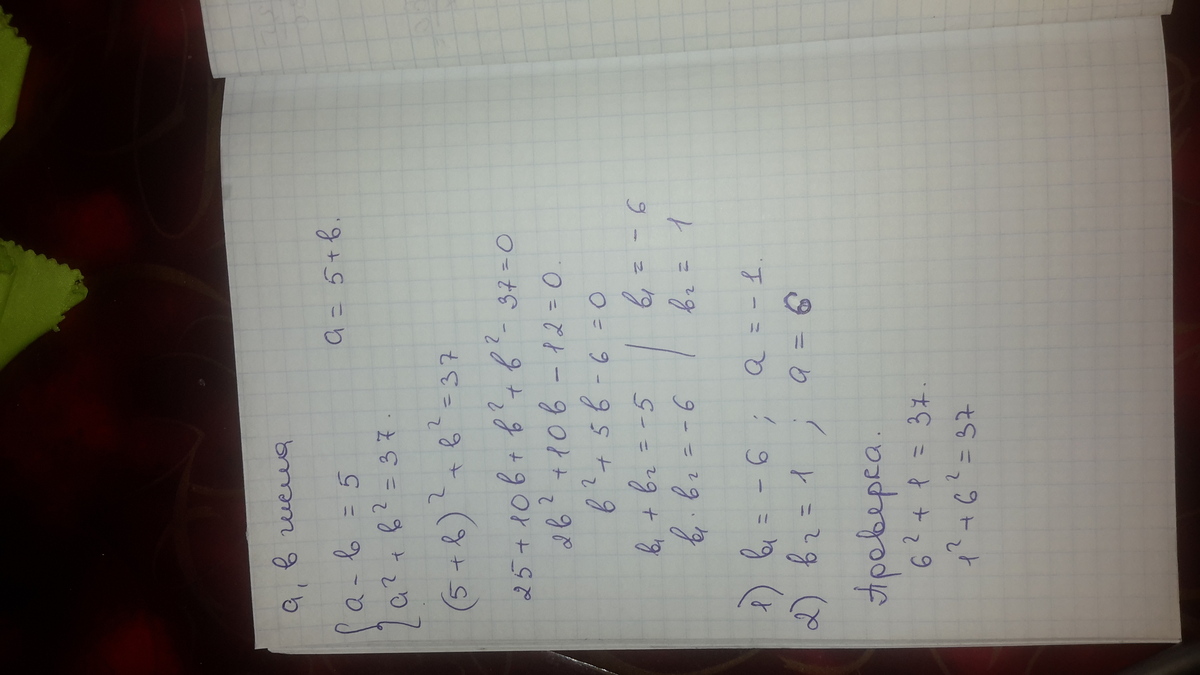 a, в числа
{ a - в = 5      a = 5 + в.
a² + в² = 37.
(5 + в)² + в² = 37
25 + 10в + в² + в² - 37 = 0
2в² + 10в - 12 = 0.
в² + 5в - 6 = 0
в₁ + в₂ = -5 | в₁ = -6
в₁ · в₂ = -6 | в₂ = 1
1) в₁ = -6 ; a = -1.
2) в₂ = 1 ; a = 6
Проверка.
6² + 1 = 37.
1² + 6² = 37